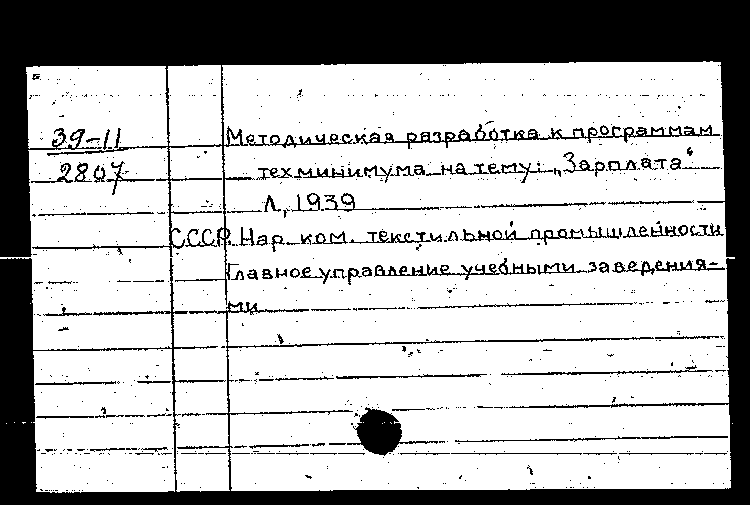 39-11
2807
Методическая разработка к программам
техминимума на тему: „Зарплата“
Л., 1939
СССР. Нар. ком. текстильной промышленности
Главное управление учебными заведения-
ми